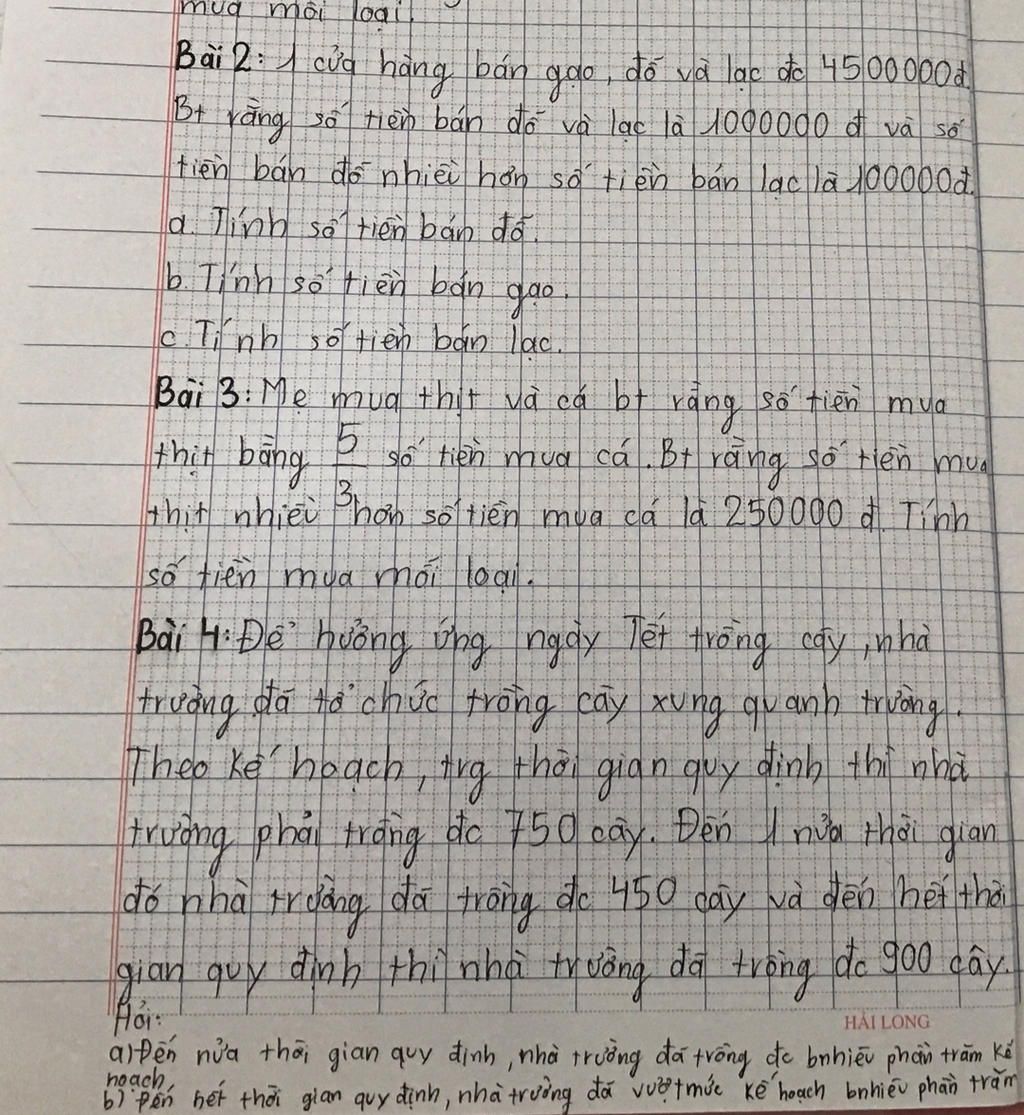 mua mỗi loại.
Bài 2: 1 cửa hàng bán gạo, đỗ và lạc đc 4500000đ.
Bt rằng số tiền bán đỗ và lạc là 1000000 đ và số
tiền bán đỗ nhiều hơn số tiền bán lạc là 100000đ.
a. Tính số tiền bán đỗ.
b. Tính số tiền bán gạo.
c. Tính số tiền bán lạc.
Bài 3: Mẹ mua thịt và cá bt rằng số tiền mua
thịt bằng 5/3 số tiền mua cá. Bt rằng số tiền mua
thịt nhiều hơn số tiền mua cá là 250000 đ. Tính
số tiền mua mỗi loại.
Bài 4: Để hưởng ứng ngày Tết trồng cây, nhà
trường đã tổ chức trồng cây xung quanh trường.
Theo kế hoạch, trg thời gian quy định thì nhà
trường phải trồng đc 750 cây. Đến 1 nửa thời gian
đó nhà trường đã trồng đc 450 cây và đến hết thời
gian quy định thì nhà trường đã trồng đc 900 cây.
Hỏi:
HẢI LONG
a) Đến nửa thời gian quy định, nhà trường đã trồng đc bnhiêu phần trăm kế
hoạch.
b) Đến hết thời gian quy định, nhà trường đã vượt mức kế hoạch bnhiêu phần trăm